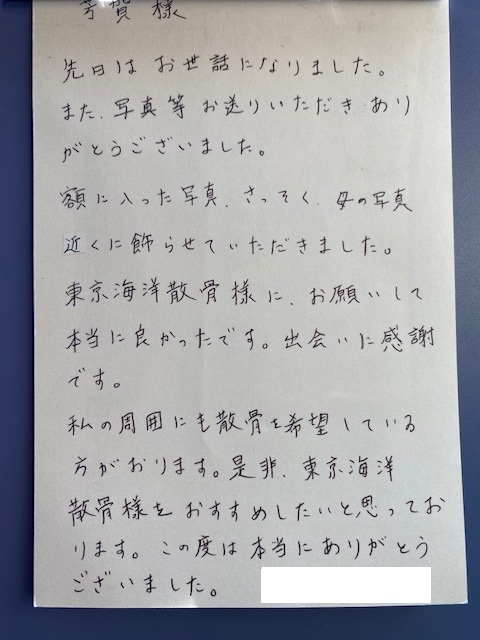 芳賀様
先日はお世話になりました。
また、写真等お送りいただきあり
がとうございました。
額に入った写真、さっそく、母の写真
近くに飾らせていただきました。
東京海洋散骨様に、お願いして
本当に良かったです。出会いに感謝
です。
私の周囲にも散骨を希望している
方がおります。是非、東京海洋
散骨様をおすすめしたいと思ってお
ります。この度は本当にありがとう
ございました。